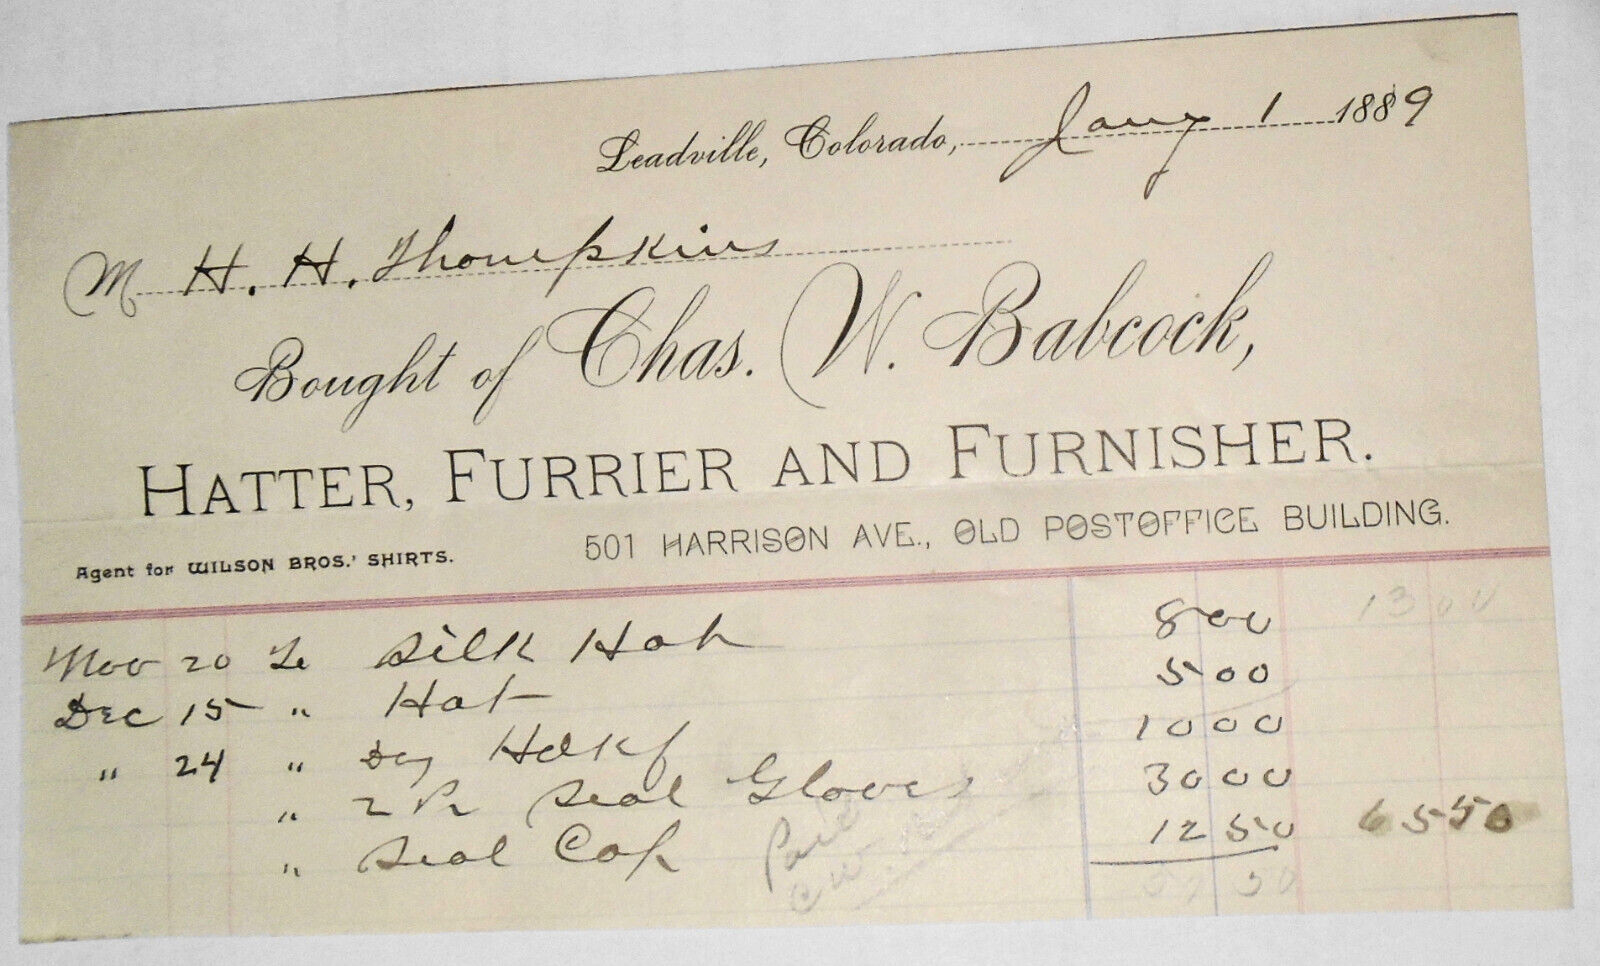 Leadville, Colorado, Jany 1 1889
M H. H. Thompkins
Bought of Chas. W. Babcock,
HATTER, FURRIER AND FURNISHER.
Agent for WILSON BROS.' SHIRTS. 501 HARRISON AVE., OLD POSTOFFICE BUILDING.
Nov 20 To Silk Hat 8 00 13 00
Dec 15 " Hat 5 00
" 24 " Doz Hdkf 10 00
" 2 Pr Seal Gloves 30 00
" Seal Cap 12 50 65 50
Paid
CW